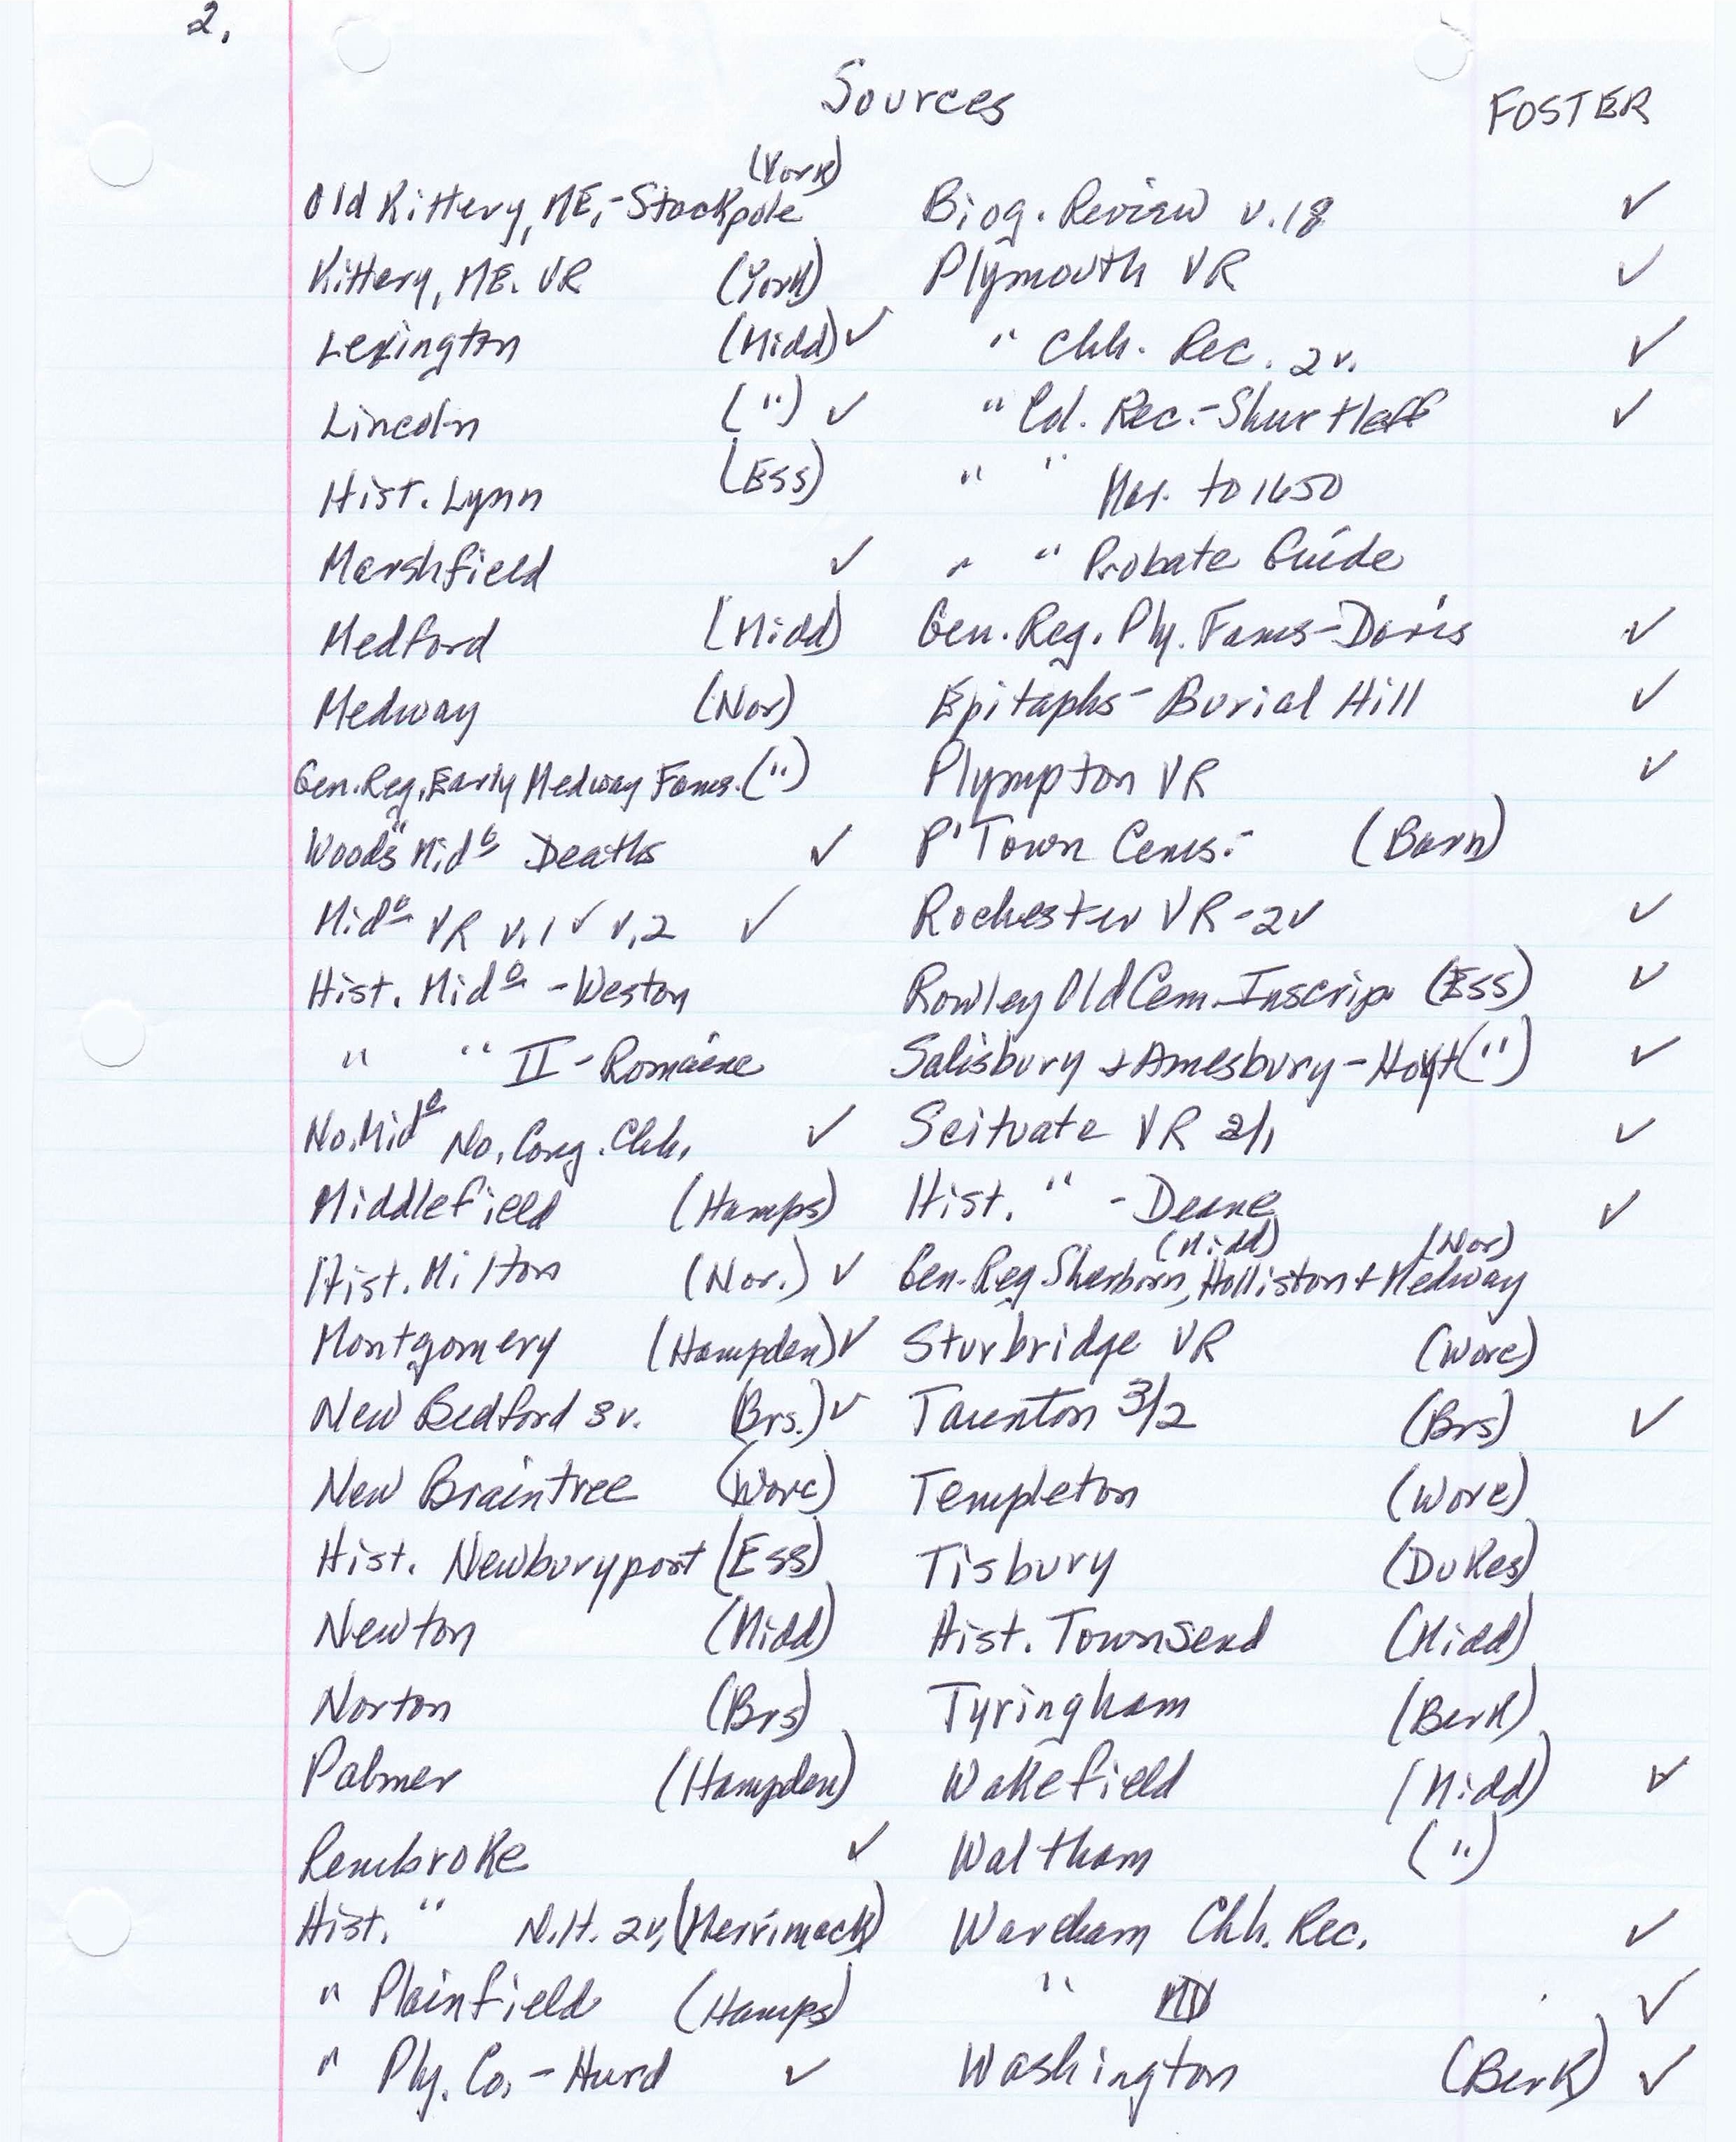 2.
Sources
FOSTER
(York)
Old Kittery, ME,-Stackpole
Kittery, ME. VR (York)
Lexington (Midd) ✓
Lincoln (") ✓
Hist. Lynn (Ess)
Marshfield ✓
Medford (Midd)
Medway (Nor)
Gen. Reg. Early Medway Fams. (")
Wood's Mido Deaths ✓
Mido VR v.1 ✓ v.2 ✓
Hist. Mido - Weston
" " II - Romaine
No. Mido No. Cong. Chh. ✓
Middlefield (Hamps)
Hist. Milton (Nor.) ✓
Montgomery (Hampden) ✓
New Bedford 3v. (Brs.) ✓
New Braintree (Worc)
Hist. Newburyport (Ess)
Newton (Midd)
Norton (Brs)
Palmer (Hampden)
Pembroke ✓
Hist. " N.H. 2v, (Merrimack)
" Plainfield (Hamps)
" Ply. Co. - Hurd ✓
Biog. Review v.18 ✓
Plymouth VR ✓
" Chh. Rec. 2v. ✓
" Col. Rec.-Shurtleff ✓
" " Mar. to 1650
" " Probate Guide
Gen. Reg. Ply. Fams-Davis ✓
Epitaphs - Burial Hill ✓
Plympton VR ✓
P'Town Cems.- (Barn)
Rochester VR - 2v ✓
Rowley Old Cem. Inscrip. (Ess) ✓
Salisbury + Amesbury - Hoyt (") ✓
Scituate VR 2/1 ✓
Hist. " - Deane ✓
(Midd) (Nor)
Gen. Reg. Sherborn, Holliston + Medway
Sturbridge VR (Worc)
Taunton 3/2 (Brs) ✓
Templeton (Worc)
Tisbury (Dukes)
Hist. Townsend (Midd)
Tyringham (Berk)
Wakefield (Midd) ✓
Waltham (")
Wareham Chh. Rec. ✓
" ✓
Washington (Berk) ✓